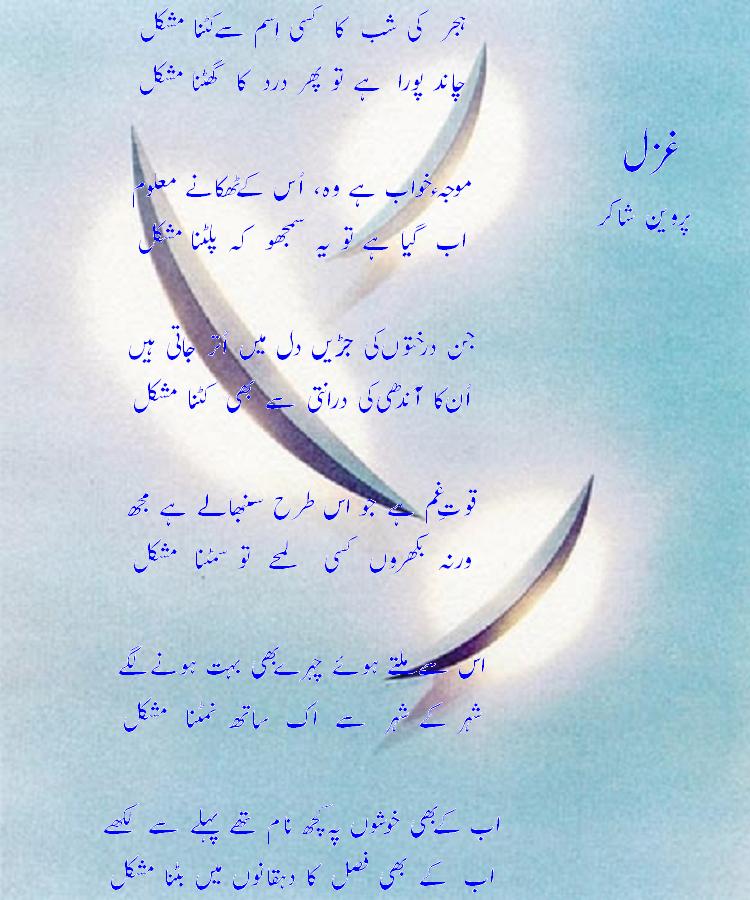 غزل
پروین شاکر
ہجر کی شب کا کسی اسم سے کٹنا مشکل
چاند پورا ہے تو پھر درد کا گھٹنا مشکل
موجہءخواب ہے وہ، اُس کے ٹھکانے معلوم
اب گیا ہے تو یہ سمجھو کہ پلٹنا مشکل
جن درختوں کی جڑیں دل میں اُتر جاتی ہیں
اُن کا آندھی کی درانتی سے بھی کٹنا مشکل
قوتِ غم ہے جو اس طرح سنبھالے ہے مجھ
ورنہ بکھروں کسی لمحے تو سمٹنا مشکل
اس سے ملتے ہوئے چہرے بھی بہت ہونے لگے
شہر کے شہر سے اک ساتھ نمٹنا مشکل
اب کے بھی خوشوں پہ کچھ نام تھے پہلے سے لکھے
اب کے بھی فصل کا دہقانوں میں بٹنا مشکل